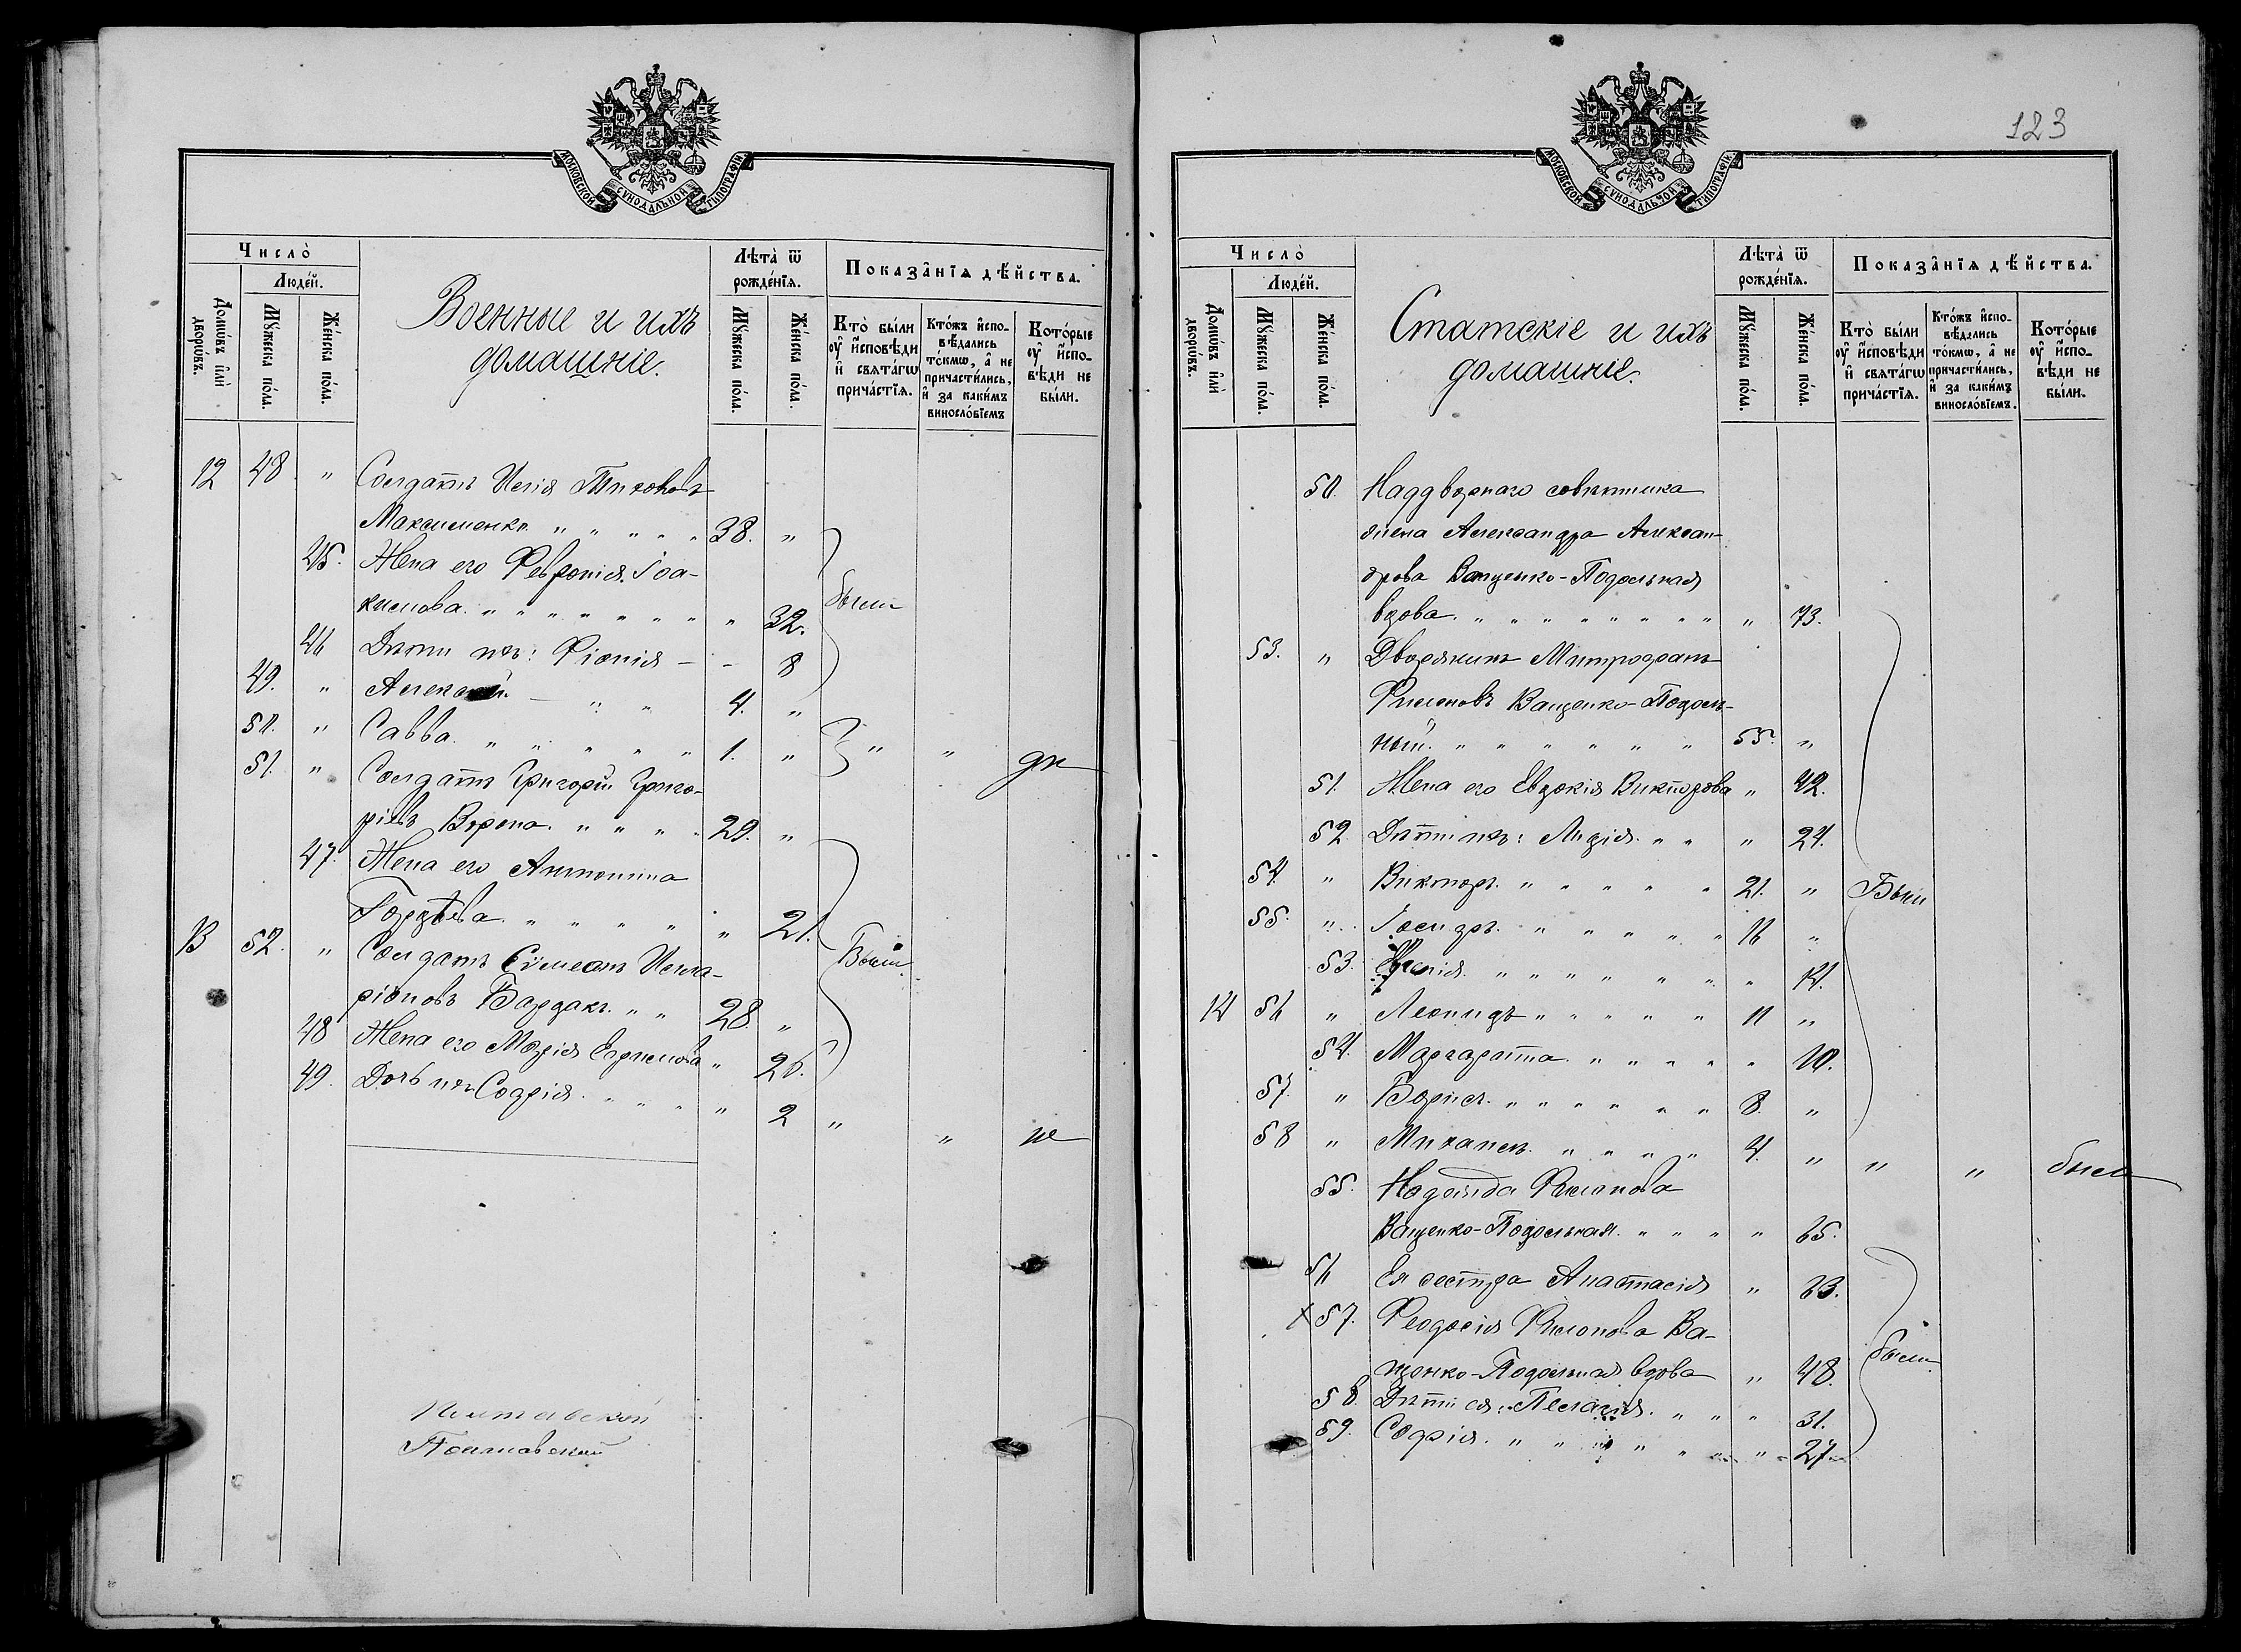 МОСКОВСКОЙ СѴНОДАЛЬНОЙ ТИПОГРАФІИ
Число̀
Людéй.
Домѡ́въ и҆лѝ дворѡ́въ.
Мꙋ́жеска по́ла.
Же́нска по́ла.
Военные и ихъ
домашніе.
Лѣта̀ ѿ рождéнїѧ.
Мꙋ́жеска по́ла.
Же́нска по́ла.
Показа̂нїѧ дѣ́йства.
Кто̀ бы́ли ᲂу҆ и҆сповѣ́ди и҆ свѧта́гѡ прича́стїѧ.
Кто́жъ и҆спо-вѣ́дались то́кмѡ, а҆ не причасти́лись, и҆ за каки́мъ винослóвїемъ
Кото́рые ᲂу҆ и҆спо-вѣ́ди не бы́ли.
12 48 " Солдатъ Исаія Тихоновъ
Максименко " " " " " 38. "
45. Жена его Февронія Іоа-
кимова. " " " " " " " " 32.
были
46 Дѣти ихъ: Фіонія - - 8
49. " Алексѣй. - " " 4. "
50. " Савва. " " " " " 1. " " "
51. " Солдатъ Григорій Григо-
ріевъ Ворона. " " " " 29. "
47. Жена его Антонина
Гордѣева. " " " " " " 21.
Были
13 52. " Солдатъ Сѵмеонъ Исаа-
ріоновъ Бардакъ. " " 28. "
48 Жена его Марія Ефимова " 26.
49. Дочь ихъ Софія. " " " " 2 " " не
Полтавскій
123
МОСКОВСКОЙ СѴНОДАЛЬНОЙ ТИПОГРАФІИ
Число̀
Людéй.
Домѡ́въ и҆лѝ дворѡ́въ.
Мꙋ́жеска по́ла.
Же́нска по́ла.
Статскіе и ихъ
домашніе.
Лѣта̀ ѿ рождéнїѧ.
Мꙋ́жеска по́ла.
Же́нска по́ла.
Показа̂нїѧ дѣ́йства.
Кто̀ бы́ли ᲂу҆ и҆сповѣ́ди и҆ свѧта́гѡ прича́стїѧ.
Кто́жъ и҆спо-вѣ́дались то́кмѡ, а҆ не причасти́лись, и҆ за каки́мъ винослóвїемъ.
Кото́рые ᲂу҆ и҆спо-вѣ́ди не бы́ли.
50. Надворнаго совѣтника
жена Александра Алексан-
дрова Ващенко-Подольная
вдова. " " " " " " " " " " 73.
53. " Дворянинъ Митрофанъ
Филоновъ Ващенко-Подоль-
ный. " " " " " " " 55. "
51. Жена его Евдокія Викторова " 42.
52. Дѣти ихъ: Лидія. " " " 24.
54. " Викторъ. " " " " " 21. " Были
55. " Іосифъ. " " " " " 16 "
53. Ксенія. " " " " " " " 14.
14 56 " Леонидъ " " " " " 11 "
54. Маргарита. " " " " " 10.
57. " Борисъ. " " " " " " 8. "
58 " Михаилъ. " " " " 4. " " " были
55. Надежда Филонова
Ващенко-Подольная. " " " " 65.
56 Ея сестра Анастасія " 63.
х 57. Феодосія Филонова Ва-
щенко-Подольная вдова " 48.
были
58. Дѣти ея: Пелагія. " " " 31.
59. Софія. " " " " " " " 27